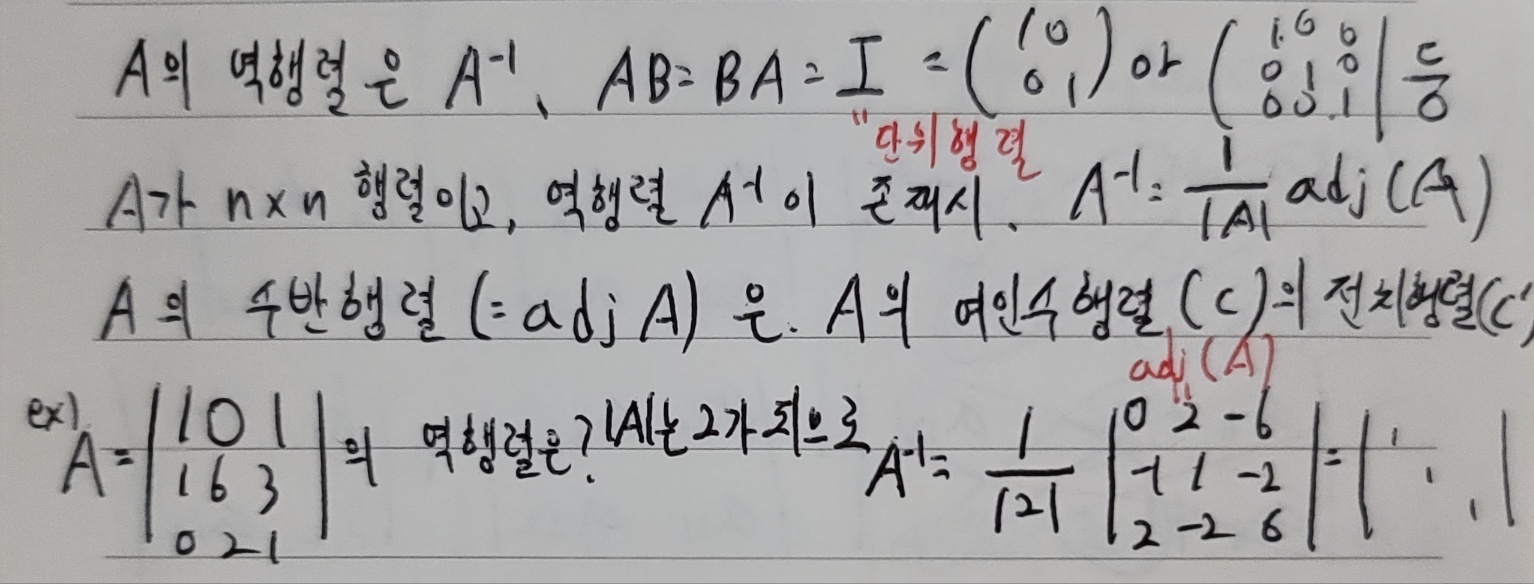 A의 역행렬은 A⁻¹, AB=BA=I=(1 0 0 1) or (1 0 0 0 1 0 0 0 1|
"단위행렬
A가 n×n 행렬이고, 역행렬 A⁻¹이 존재시, A⁻¹= 1/|A| adj(A)
A의 수반행렬(=adj A)은. A의 여인수행렬(C)의 전치행렬(C'
adj(A)
ex) A=|1 0 1 1 6 3 0 2 1|의 역행렬은? |A|는 2가 되므로 A⁻¹= 1/|2| |0 2 -6 -1 1 -2 2 -2 6|=|